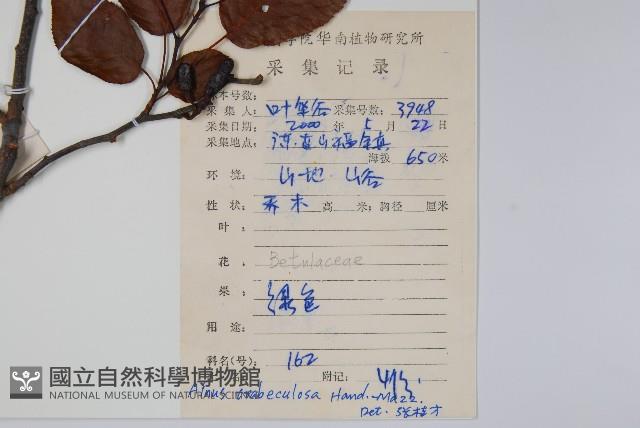 学院华南植物研究所
采集记录
标本号数:
采集人: 叶华谷 采集号数: 3948
采集日期: 2000 年 5 月 22 日
采集地点:
海拔 650 米
环境: 山地 山谷
性状: 乔木 高 米; 胸径 厘米
叶:
花: Betulaceae
果: 绿色
用途:
科名(号): 162 附记:
Alnus trabeculosa Hand.-Mazz.
Det. 张桂才
國立自然科學博物館
NATIONAL MUSEUM OF NATURAL SCIENCE